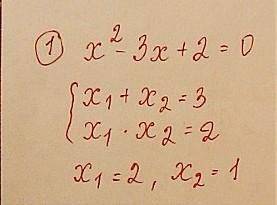 ① x² - 3x + 2 = 0
{ x₁ + x₂ = 3
x₁ · x₂ = 2
x₁ = 2, x₂ = 1